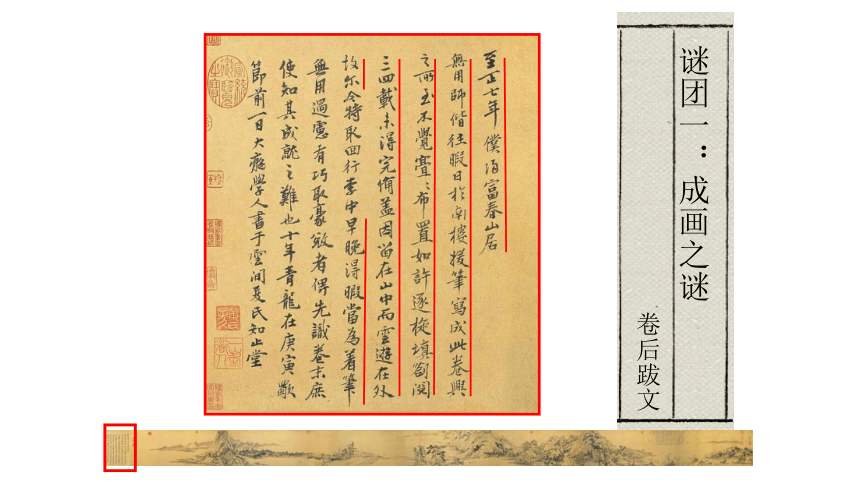 谜团一：成画之谜
卷后跋文
至正七年僕歸富春山居
無用師偕往暇日於南樓援筆寫成此卷興
之所至不覺亹亹布置如許逐旋填劄閱
三四載未得完備蓋因留在山中而雲遊在外
故爾今特取回行李中早晚得暇當為着筆
無用過慮有巧取豪敓者俾先識卷末庶
使知其成就之難也十年青龍在庚寅歜
節前一日大癡學人書于雲間夏氏知止堂